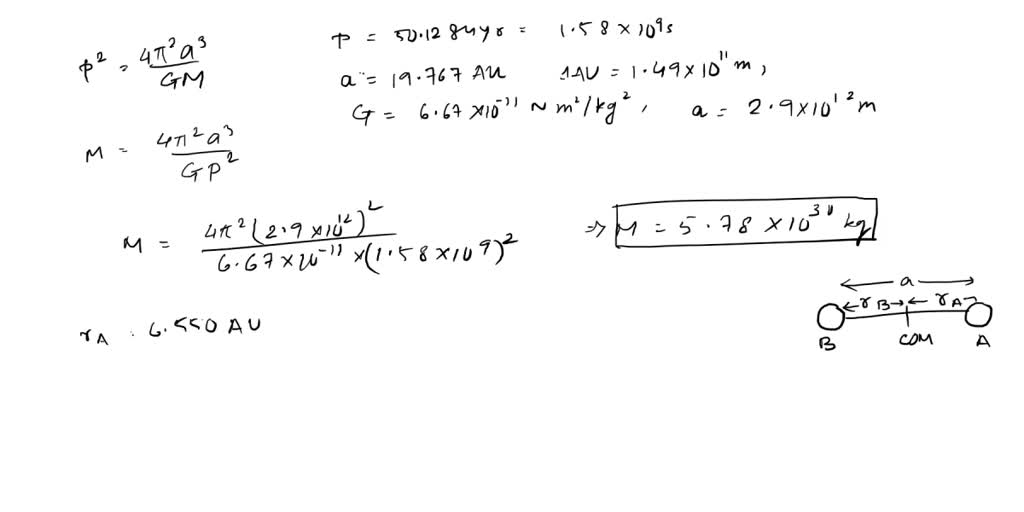 p² = 4π²a³ / GM
P = 50.1284yr = 1.58 × 10⁹s
a = 19.767 AU 1AU = 1.49×10¹¹ m,
G = 6.67 ×10⁻¹¹ N m²/kg², a = 2.9×10¹² m
M = 4π²a³ / GP²
M = 4π²(2.9×10¹²)² / 6.67×10⁻¹¹ ×(1.58×10⁹)² ⇒ M = 5.78 ×10³⁰ kg
a
r_B r_A
B COM A
r_A : 6.550 AU